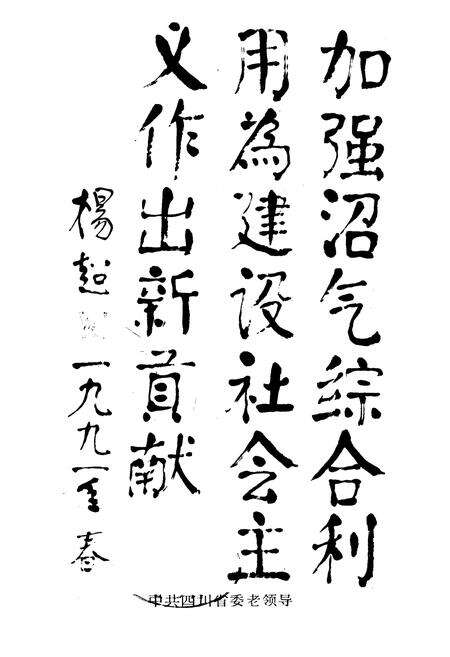 加强沼气综合利
用為建设社会主
义作出新貢献
楊超 一九九一年春
中共四川省委老领导